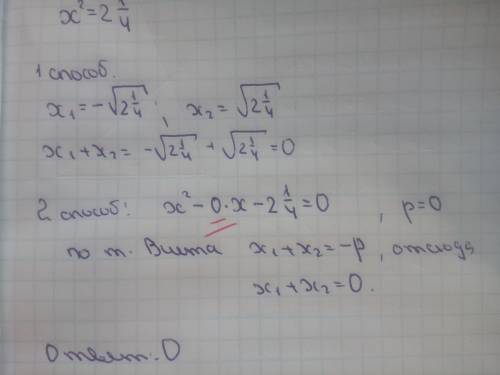 x² = 2 1/4
1 способ.
x₁ = -√(2 1/4) ; x₂ = √(2 1/4)
x₁ + x₂ = -√(2 1/4) + √(2 1/4) = 0
2 способ: x² - 0·x - 2 1/4 = 0 , p = 0
по т. Виета x₁ + x₂ = -p , отсюда
x₁ + x₂ = 0.
Ответ: 0